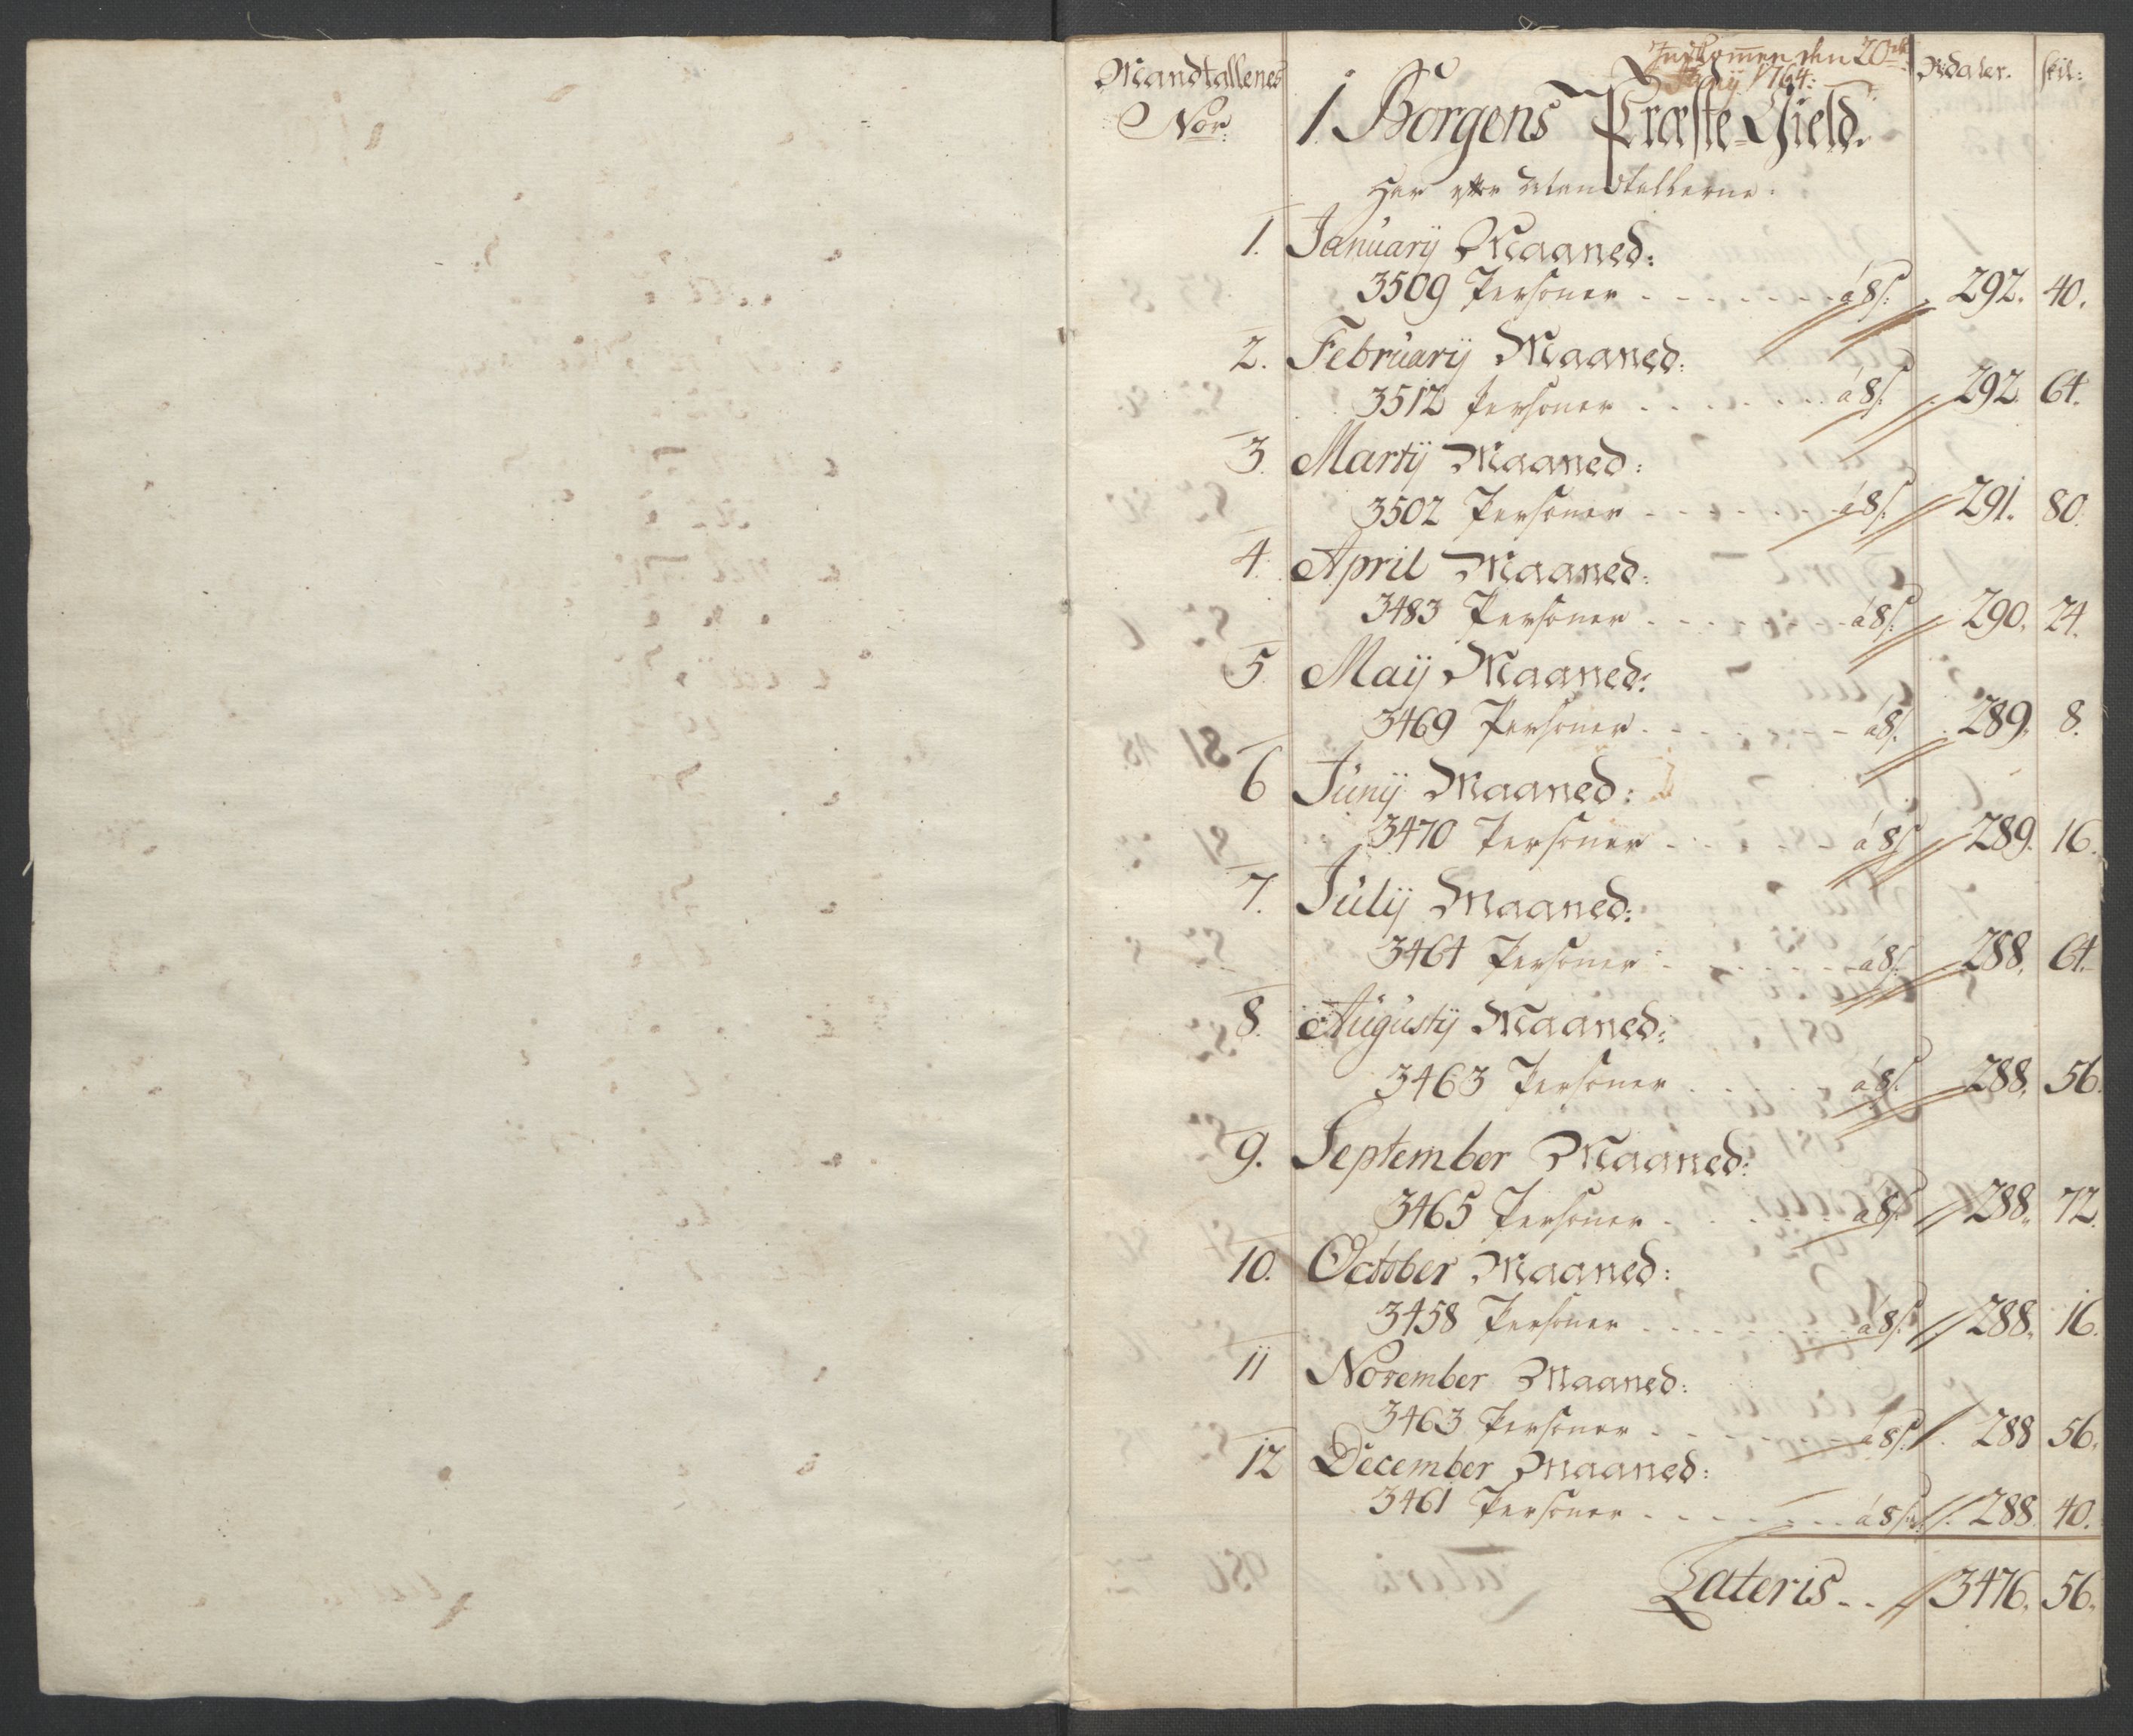 Indkommen den 20de
Mandtallenes
Nor:
Rdaler. skil:
July 1764:
1 Borgens Præste-Gield.
Har efter Mandtallerne:
1. Januarij Maaned:
3509 Personer - - - - - - - á 8s: 292. 40.
2. Februarij Maaned:
3512 Personer - - - - - - - á 8s: 292. 64.
3. Martij Maaned:
3502 Personer - - - - - - - á 8s: 291. 80.
4. April Maaned:
3483 Personer - - - - - - - á 8s: 290. 24.
5. Maij Maaned:
3469 Personer - - - - - - - á 8s: 289. 8.
6 Junij Maaned:
3470 Personer - - - - - á 8s: 289. 16.
7. Julij Maaned:
3464 Personer - - - - - - - á 8s: 288. 64.
8. Augustij Maaned:
3463 Personer - - - - - á 8s: 288. 56.
9. September Maaned:
3465 Personer - - - - - á 8s: 288. 72.
10. October Maaned:
3458 Personer - - - - - - - á 8s: 288. 16.
11 November Maaned:
3463 Personer - - - - - - - á 8s: 288 56.
12 December Maaned:
3461 Personer - - - - - - - á 8s: 288. 40.
Lateris - - - 3476. 56.